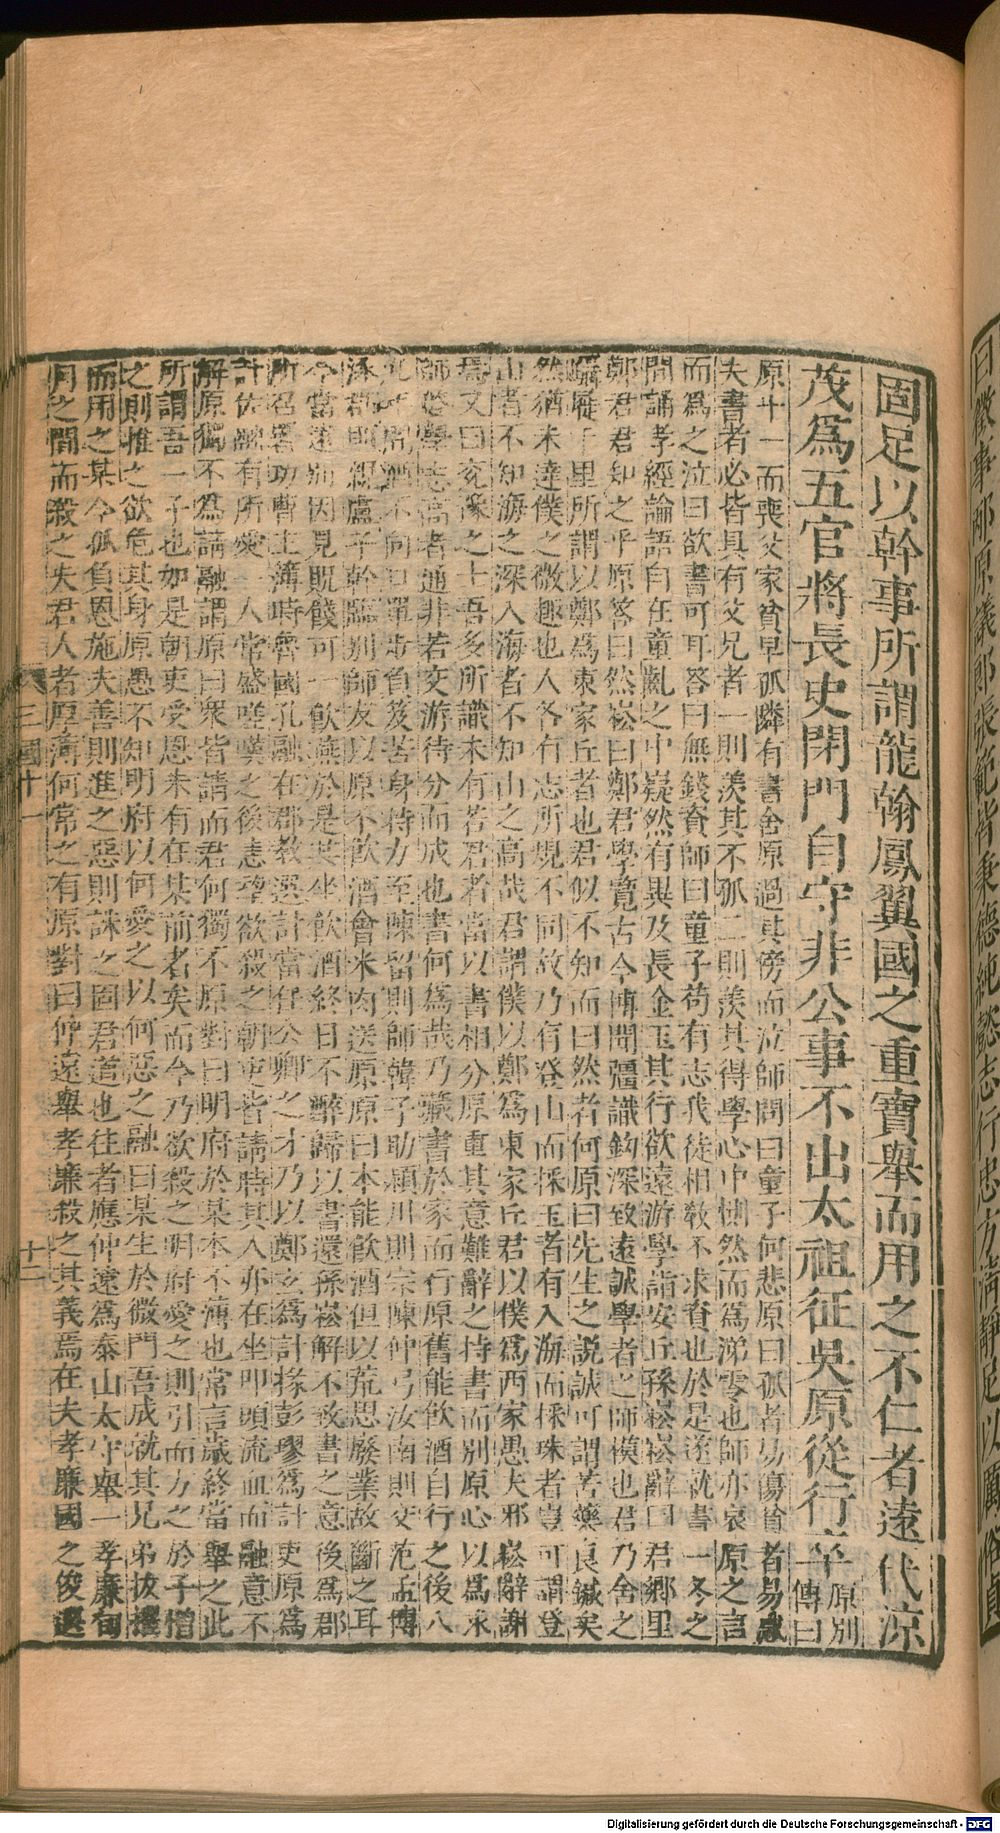 固足以幹事所謂龍翰鳳翼國之重寶舉而用之不仁者遠代涼
茂爲五官將長史閉門自守非公事不出太祖征吳原從行卒原別傳曰
原十一而喪父家貧早孤鄰有書舍原過其傍而泣師問曰童子何悲原曰孤者易傷貧者易感
夫書者必皆具有父兄者一則羨其不孤二則羨其得學心中惻然而爲涕零也師亦哀原之言
而爲之泣曰欲書可耳答曰無錢資師曰童子苟有志我徒相敎不求資也於是遂就書一冬之
間誦孝經論語自在童齓之中嶷然有異及長金玉其行欲遠游學詣安丘孫崧崧辭曰君鄉里
鄭君君知之乎原答曰然崧曰鄭君學覽古今博聞彊識鈎深致遠誠學者之師模也君乃舍之
躡屣千里所謂以鄭爲東家丘者也君似不知而曰然者何原曰先生之說誠可謂苦藥良鍼矣
然猶未達僕之微趣也人各有志所規不同故乃有登山而採玉者有入海而採珠者豈可謂登
山者不知海之深入海者不知山之高哉君謂僕以鄭爲東家丘君以僕爲西家愚夫邪崧辭謝
焉又曰兖豫之士吾多所識未有若君者當以書相分原重其意難辭之持書而別原心以爲求
師啓學志高者通非若交游待分而成也書何爲哉乃藏書於家而行原舊能飲酒自行之後八
九年間酒不向口單步負笈苦身持力至陳留則師韓子助潁川則宗陳仲弓汝南則交范孟博
涿郡則親盧子幹臨別師友以原不飲酒會米肉送原原曰本能飲酒但以荒思廢業故斷之耳
今當遠別因見貺餞可一飲燕於是共坐飲酒終日不醉歸以書還孫崧解不致書之意後爲郡
所召署功曹主簿時魯國孔融在郡敎選計當任公卿之才乃以鄭玄爲計掾彭璆爲計吏原爲
計佐融有所愛一人常盛嗟嘆之後恚望欲殺之朝吏皆請時其人亦在坐叩頭流血而融意不
解原獨不爲請融謂原曰衆皆請而君何獨不原對曰明府於某本不薄也常言歲終當舉之此
所謂吾一子也如是朝吏受恩未有在某前者矣而今乃欲殺之明府愛之則引而方之於子憎
之則推之欲危其身原愚不知明府以何愛之以何惡之融曰某生於微門吾成就其兄弟拔擢
而用之某今孤負恩施夫善則進之惡則誅之固君道也往者應仲遠爲泰山太守舉一孝廉旬
月之間而殺之夫君人者厚薄何常之有原對曰仲遠舉孝廉殺之其義焉在夫孝廉國之俊選
三國十一
十二
曰徵事邴原議郎張範皆秉德純懿志行忠方淸靜足以厲俗貞
Digitalisierung gefördert durch die Deutsche Forschungsgemeinschaft - DFG